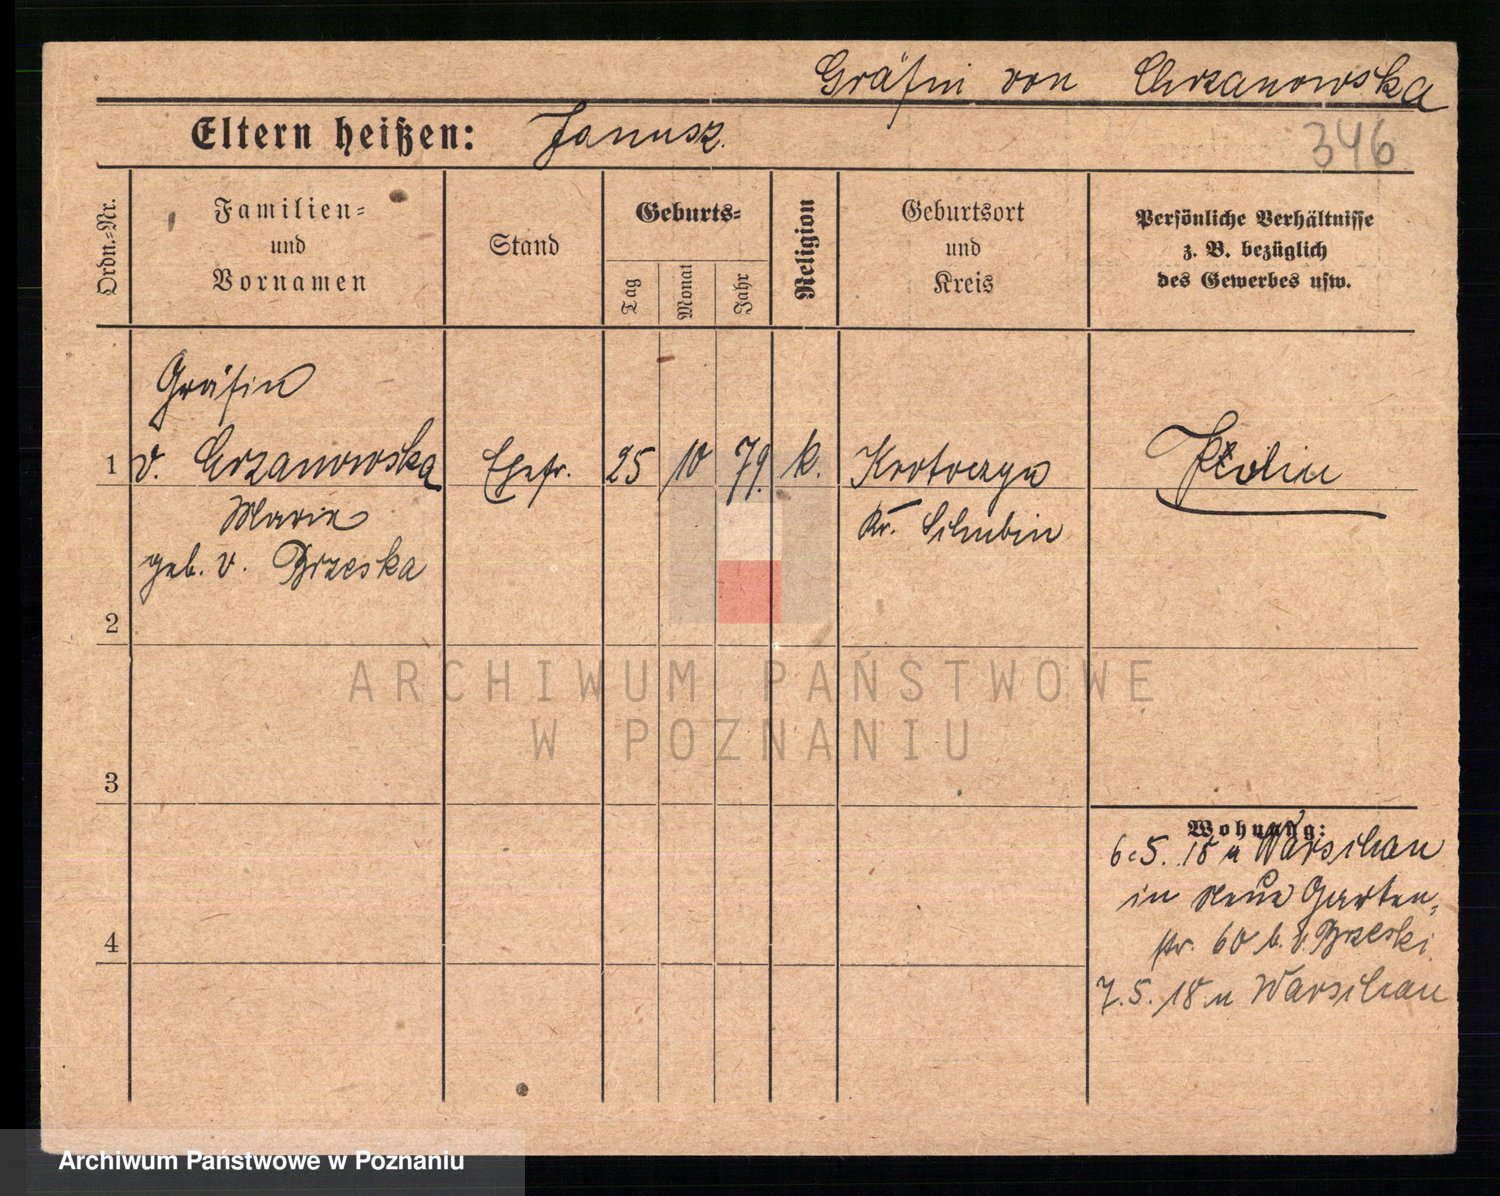 Gräfin von Chrzanowska
Eltern heißen: Janusz.
346
Ordn.=Nr.
Familien=
und
Vornamen
Stand
Geburts=
Tag
Monat
Jahr
Religion
Geburtsort
und
Kreis
Persönliche Verhältnisse
z. B. bezüglich
des Gewerbes usw.
Gräfin
1 v. Chrzanowska Ehefr. 25 10 79. k. Krotoczyn
Marie Kr. Schubin
geb. v. Brzeska
2
3
4
Wohnung:
6.5. 18 n Warschau
in Neue Garten=
str. 60 b. v. Brzeski.
7.5. 18 n Warschau
ARCHIWUM PAŃSTWOWE
W POZNANIU
Archiwum Państwowe w Poznaniu